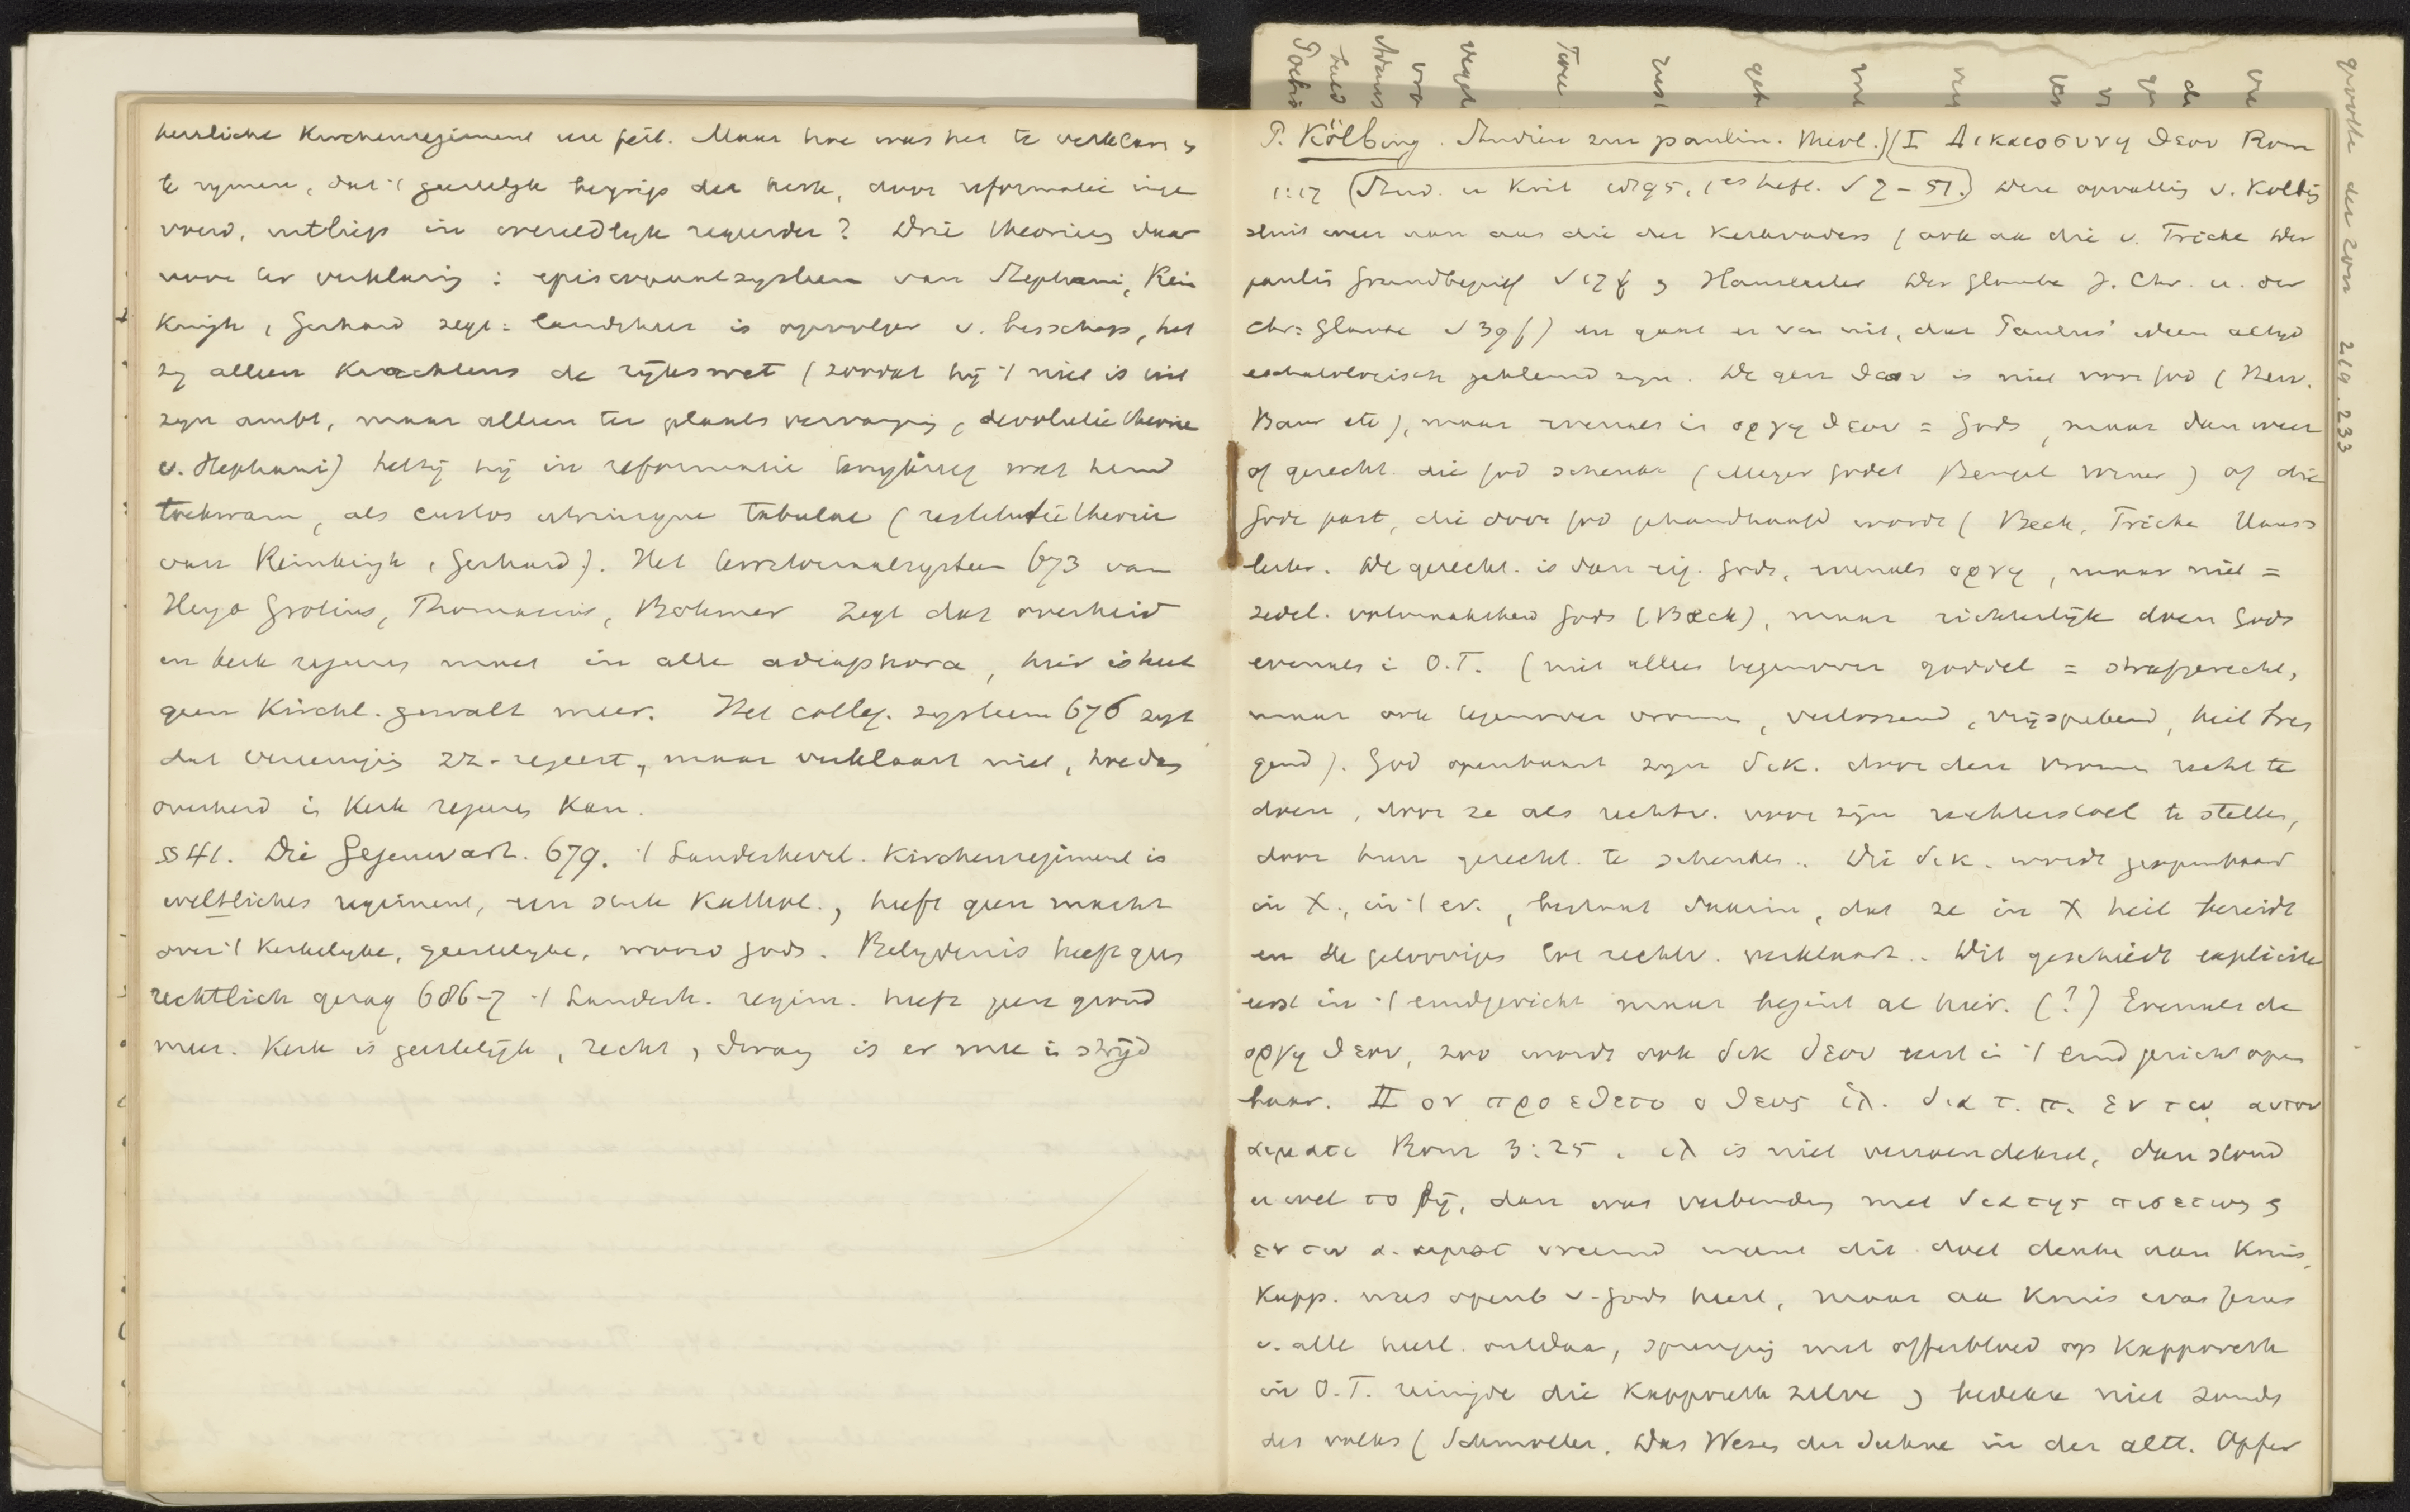 herrliche Kirchenregiment een feit. Maar hoe was het te verklaren &
te rymen, dat 't geestelyk begrip der kerk, door reformatie inge
voerd, uitliep in overheidlyk regeeren? Drie theoriën daar
voor ter verklaring: episcopaalsysteem van Stephani, Rein
Kingk, Gerhard zegt: landsheer is opvolger v. bisschop, het
zy alleen krachtens de rykswet (zoodat hij 't niet is uit
zyn ambt, maar alleen ter plaatsvervanging, devolutie theorie
v. Stephani) hetzij hij in reformatie terugkreeg wat hem
toekwam, als custos utriusque tabulae (restitutie theorie
van Reinkingk, Gerhard). Het territoriaalsysteem 673 van
Hugo Grotius, Thomasius, Böhmer zegt dat overheid
en kerk regeeren moet in alle adiaphora, hier is heel
geen Kirchl. gewalt meer. Het colleg. systeem 676 zegt
dat vereeniging zz. regeert, maar verklaart niet, hoe dan
overheid in kerk regeeren kan.
§ 41. Die Gegenwart. 679. 't Landesherrl. Kirchenregiment is
weltliches regiment, een stuk Kathol., heeft geen macht
over 't kerkelyke, geestelyke, woord Gods. Belydenis heeft geen
rechtlich gezag 686-7 't Landesh. regim. heeft geen grond
meer. Kerk is geestelijk, recht, dwang is er mee in strijd
P. Kölbing. Studien zur paulin. Theol. (I Δικαιοσυνη θεου Rom
1:17 (Stud. u Krit 1895, 1es heft. S 7-51.) Deze opvatting v. Kölbing
sluit weer aan aan die der Kerkvaders (ook aan die v. Fricke Der
paulin Grundbegriff S 17 f & Haussleiter Der Glaube J. Chr. u. der
chr. Glaube S 39 f) en gaat er van uit, dat Paulus' ideen altyd
eschatologisch gekleurd zyn. De gen θεου is niet voor God (Herv.
Baur etc), maar evenals in οργη θεου = Gods, maar dan weer
of gerecht. die God schenkt (Meyer Godet Bengel Winer) of die
Gode past, die door God gehandhaafd wordt (Beck, Fricke Hauss
leiter. De gerecht. is dan eig. Gods, evenals οργη, maar niet =
zedel. volmaaktheid Gods (Beck), maar richterlijk doen Gods
evenals in O.T. (niet alleen tegenover goddel = strafgerecht,
maar ook tegenover vroomen, verlossend, vrijsprekend, heil bren
gend). God openbaart zyn δικ. door den vroomen recht te
doen, door ze als rechtv. voor zijn rechterstoel te stellen,
door hun gerecht. te schenken. Die δικ. wordt geopenbaard
in X., in 't ev., bestaat daarin, dat ze in X heil bereidt
en de geloovigen tot rechtv. verklaart. Dit geschiedt explicite
eerst in 't eindgericht maar begint al hier. (?) Evenals de
οργη θεου, zoo wordt ook δικ θεου eerst in 't eindgericht open
baar. II ον προεθετο ο θεος ἱλ. δια τ. π. εν τω αυτου
αιματι Rom 3:25. ιλ is niet verzoendeksel, dan stond
er wel το bij, dan was verbinding met δια της πιστεως &
εν τω α. αιματ vreemd want dit doet denken aan Kruis,
Kapp. was openb v. Gods heerl, maar aan Kruis was Jezus
v. alle heerl. ontdaan, sprenging met offerbloed op Kapporeth
in O.T. reinigde die Kapporeth zelve & bedekte niet zonde
des volks (Schmoller. Das Wesen der Suhne in der altt. Opfer
219. 233